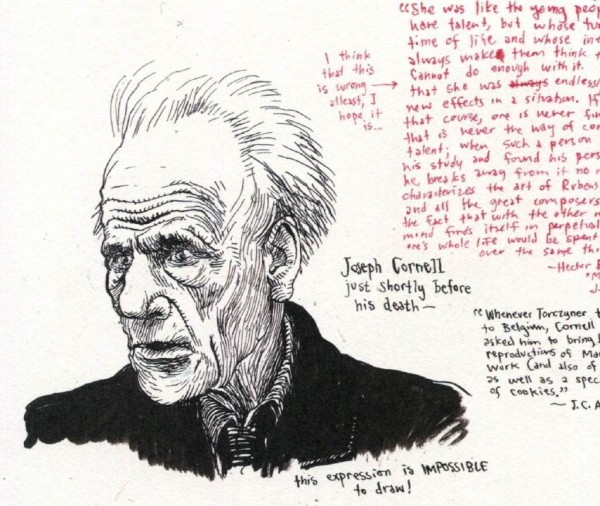 I think
that this
is wrong
atleast, I
hope it
is...
"She was like the young peop
have talent, but whose tu
time of life and whose in
always makes them think
cannot do enough with it.
that she was always endless
new effects in a situation. If
that course, one is never fin
that is never the way of co
talent; when such a person
his study and found his pers
he breaks away from it no m
characterizes the art of Rubens
and all the great composers
the fact that with the other
mind finds itself in perpetual
one's whole life would be spent
over the same th
~Hector B
"M
J.
Joseph Cornell
just shortly before
his death~
"Whenever Torczyner t
to Belgium, Cornell
asked him to bring
reproductions of Ma
work (and also of
as well as a spec
of cookies."
~ J.C. A
this expression is IMPOSSIBLE
to draw!